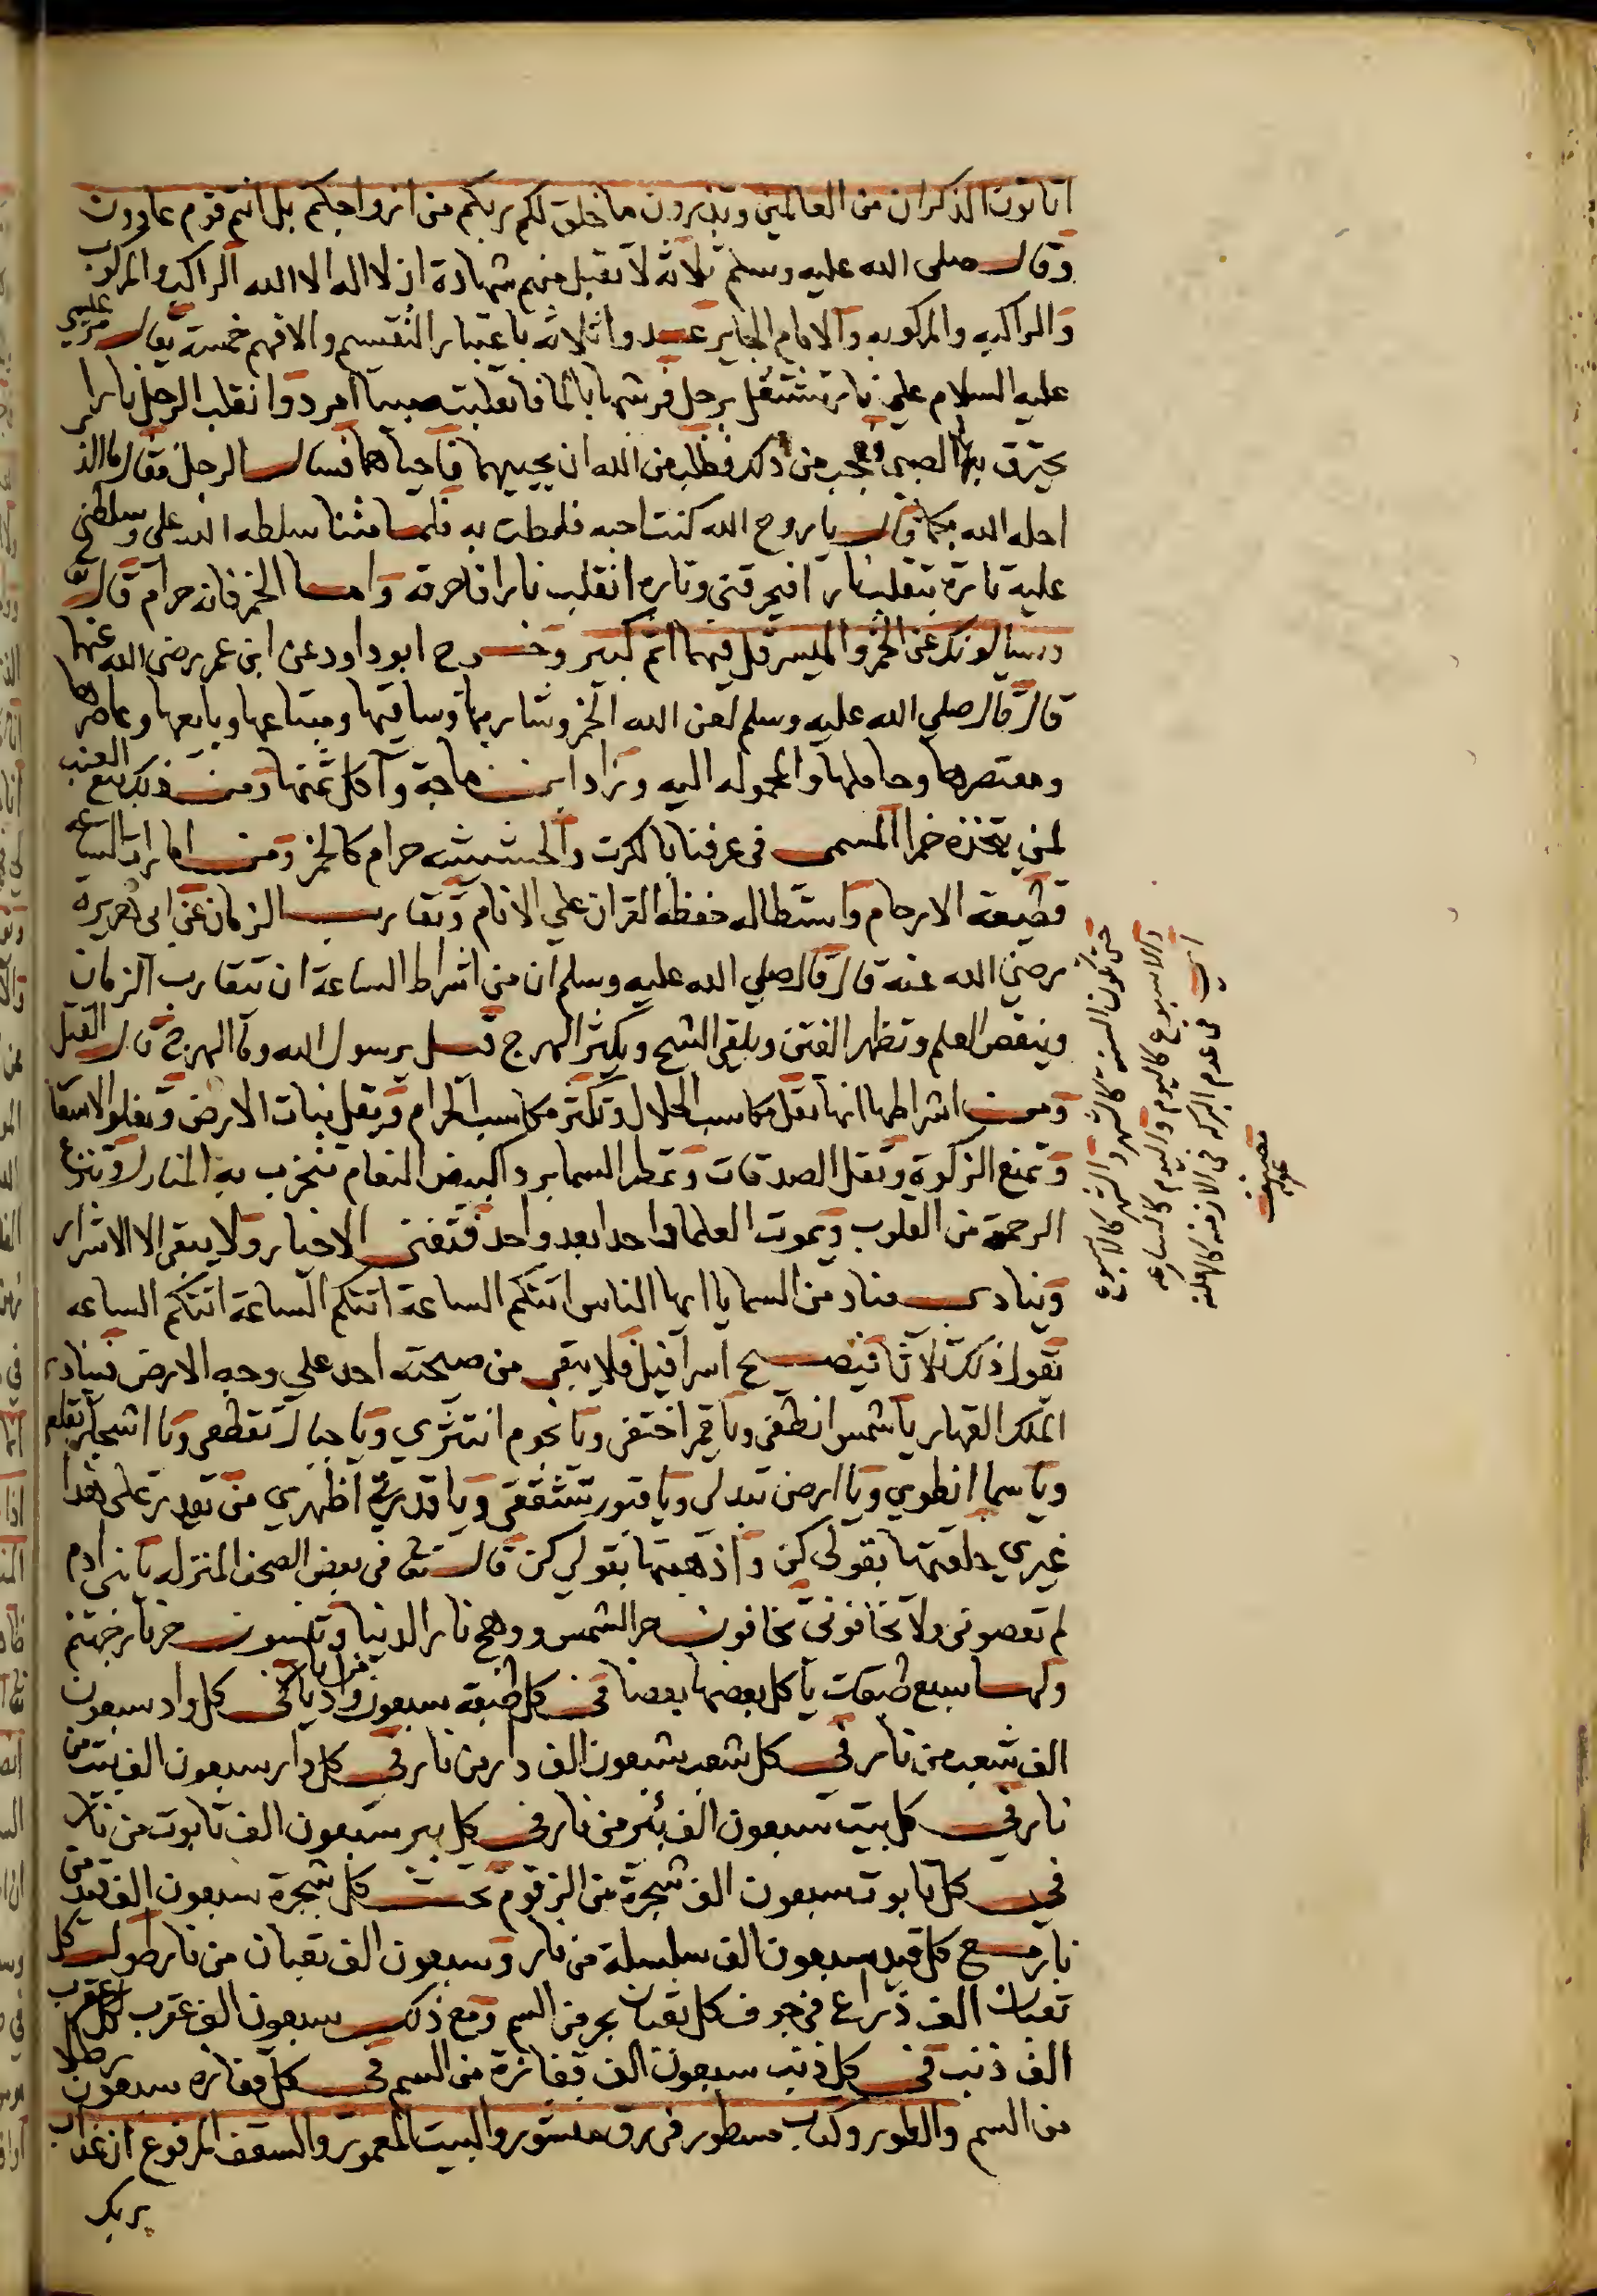 اتاتون الذكران من العالمين وتذرون ما خلق لكم ربكم من ازواجكم بل انتم قوم عادون
وقال صلى الله عليه وسلم ثلاثة لا تقبل منهم شهادة ان لا اله الا الله الراكب والمركوب
والراكبه والمركوبه والامام الجاير عدوا ثلاثه باعتبار التقسيم والا فهم خمسة يقال مر عيسى
عليه السلام على نار تشتعل برجل فرشها بالما فانقلبت صبيا امرد وانقلب الرجل نارا
يحترق بها الصبى فعجب من ذلك وطلب من الله ان يحييهما فاحياهما فسال الرجل وقال ما الذ
احله الله بكما قال يا روح الله كنت احبه فلطت به فلما متنا سلطه الله على وسلطنى
عليه تارة ينقلب نارا فيحرقنى وتاره انقلب نارا فاحرقه واما الخمر فانه حرام قال تع
ويسالونك عن الخمر والميسر قل فيهما اثم كبير وخرج ابو داود عن ابن عمر رضى الله عنهما
قال قال صلي الله عليه وسلم لعن الله الخمر وشاربها وساقيها ومبتاعها وبايعها وعاصرها
ومعتصرها وحاملها والمحموله اليه وزاد ابن ماجة وآكل ثمنها ومن ذلك بيع العنب
لمن يتخذه خمرا المسمى فى عرفنا بالكرت والحشيشه حرام كالخمر ومن امارات الساعه
قطيعة الارحام واستطاله حفظه القران علي الانام وتقارب الزمان عن ابى هريره
رضي الله عنه قال قال صلي الله عليه وسلم ان من اشراط الساعة ان يتقارب الزمان
وينقص العلم وتظهر الفتن ويلقي الشح ويكثر الهرج قيل يرسول الله وما الهرج قال القتل
ومن اشراطها انها تقل مكاسب الحلال وتكثر مكاسب الحرام ويقل نبات الارض وتغلو الاسعا
وتمنع الزكوة وتقل الصدقات وتمطر السما بردا كبيض النعام تخرب به المنازل وتنزع
الرحمة من القلوب ويموت العلما واحدا بعد واحد فتفنى الاخيار ولا يبقى الا الاشرار
وينادى مناد من السما يا ايها الناس اتتكم الساعة اتتكم الساعة اتتكم الساعه
يقول ذلك ثلاثا فيصيح اسرافيل فلا يبقى من صيحته احد علي وجه الارض فينادى
الملك القهار يا شمس انطفى ويا قمر اختفى ويا نجوم انتثري ويا جبال تقطعى ويا اشجار تقلعى
ويا سما انطوي ويا ارض تبدلى ويا قبور تشققى ويا قدرتى اظهري من يقدر على هذا
غيري خلقتها بقولى كن واذهبتها بقولي كن قال تعالى فى بعض الصحف المنزله يا بنى ادم
لم تعصونى ولا تخافونى تخافون حر الشمس ووهج نار الدنيا وتنسون حر نار جهنم
ولها سبع طبقات ياكل بعضها بعضا فى كل طبقه سبعون واديا من نار فى كل واد سبعون
الف شعب من نار فى كل شعب سبعون الف دار من نار فى كل دار سبعون الف بيت من
نار فى كل بيت سبعون الف بئر من نار فى كل بير سبعون الف تابوت من نار
فى كل تابوت سبعون الف شجرة من الزقوم تحت كل شجرة سبعون الف قيد من
نار مع كل قيد سبعون الف سلسلة من نار وسبعون الف ثعبان من نار طول كل
ثعبان الف ذراع فى جوف كل ثعبان بحر من السم ومع ذلك سبعون الف عقرب لكل عقرب
الف ذنب فى كل ذنب سبعون الف قفازة من السم فى كل قفازه سبعون رطلا
من السم والطور وكتاب مسطور فى رق منشور والبيت المعمور والسقف المرفوع ان عذاب
ربك
حتى تكون السنة كالشهر والشهر كالاسبوع
والاسبوع كاليوم واليوم كالساعه
اى فى عدم البركه فى الازمنه